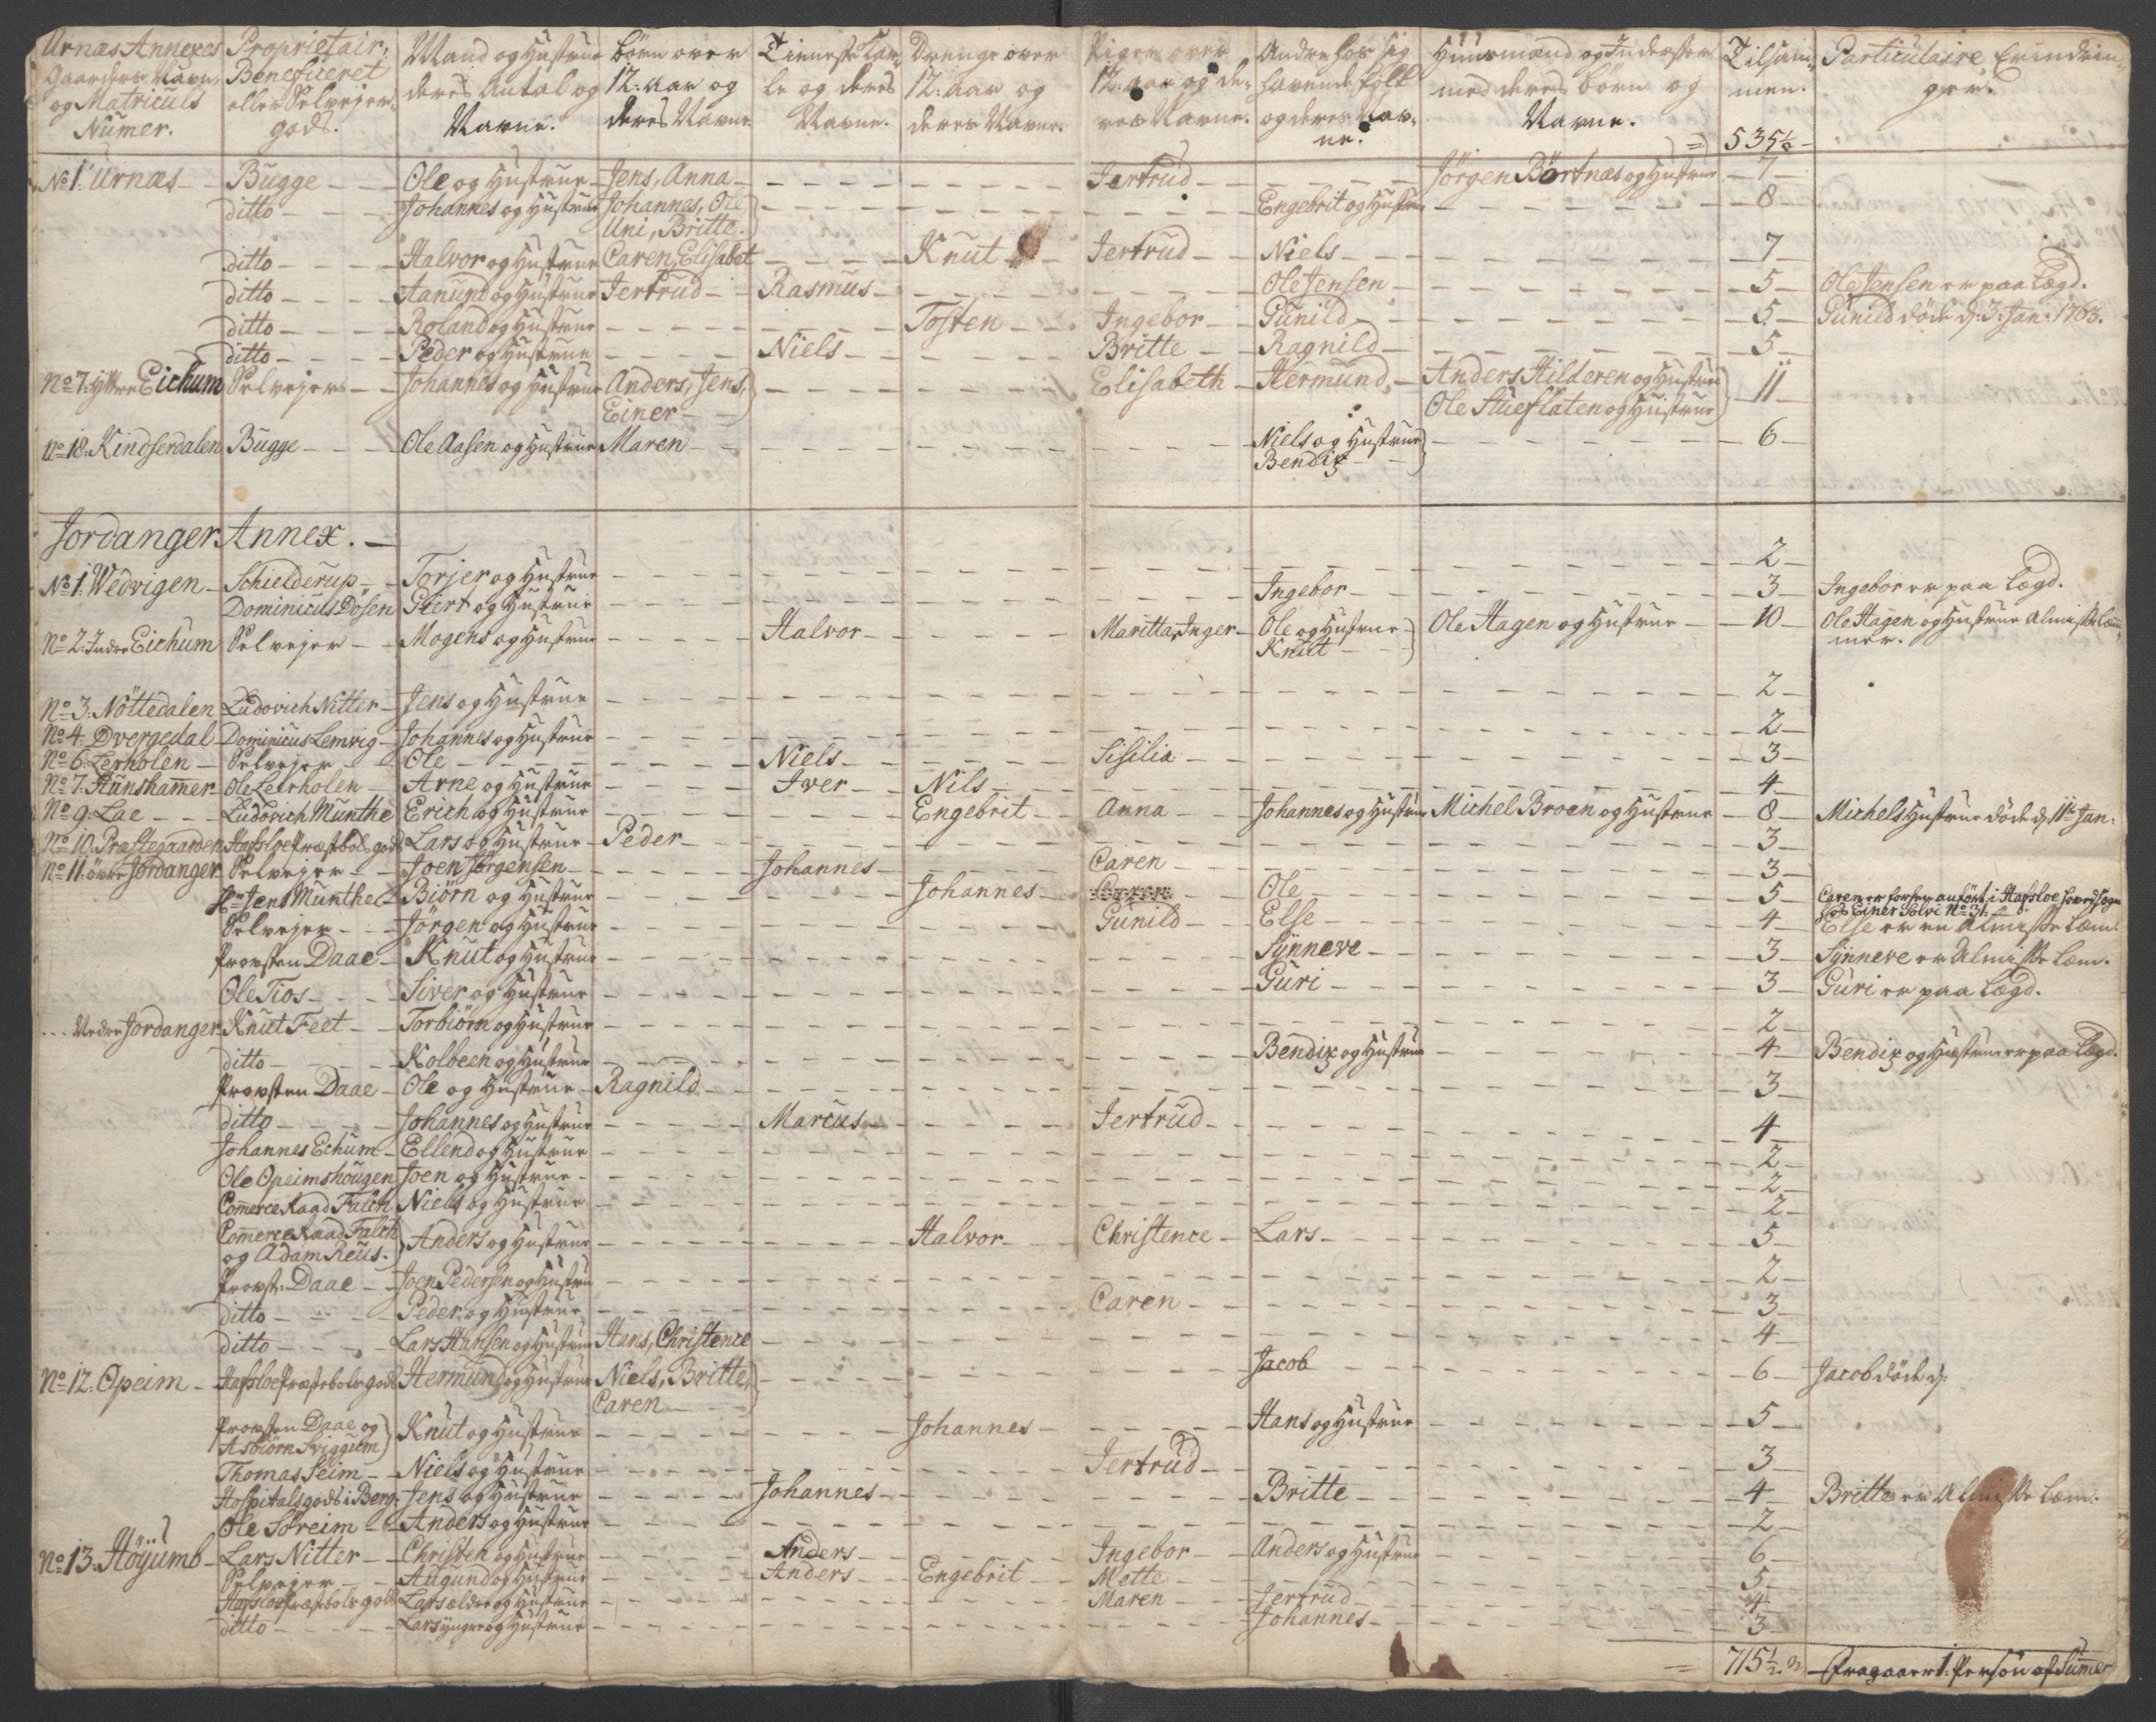 Urnæs Annexes Gaarders Navn, og Matriculs Numer. | Proprietair, Beneficeret eller Selvejer gods. | Mand og Hustrue deres Antal og Navne. | Børn over 12: aar og deres Navne. | Tieneste Karle og deres Navne. | Drenge over 12: aar og deres Navne. | Piger over 12: aar og deres Navne. | Andre hos sig havende folk og deres Navne. | Huusmænd og Inderster med deres børn og Navne. | Tilsammen. | Particulaire Erindringer.
= 535½
No 1. Urnæs | Bugge | Ole og Hustrue | Jens, Anna | Jertrud | Jörgen Börtnæs og Hustrue | 7
ditto | Johannes og Hustrue | Johannes, Ole | Engebrit og Hustrue | 8
Uni, Britte
ditto | Halvor og Hustrue | Caren, Elisabet | Knut | Jertrud | Niels | 7
ditto | Aanund og Hustrue | Jertrud | Rasmus | Ole Jensen | 5 | Ole Jensen er paa Lægd.
ditto | Roland og Hustrue | Tosten | Ingebor | Gunild | 5 | Gunild döde d: 3. Jan: 1763.
ditto | Peder og Hustrue | Niels | Britte | Ragnild | 5
No 7. Yttre Eichum | Selvejer | Johannes og Hustrue | Anders, Jens, | Elisabeth | Hermund | Anders Hilderen og Hustrue | 11
Einer | Ole Stueflaten og Hustrue
No 18. Kindserdalen | Bugge | Ole Aasen og Hustrue | Maren | Niels og Hustrue | 6
Bendix
Jordanger Annex.
No 1. Wedvigen | Schielderup | Torjer og Hustrue | 2
Dominicus Dösen | Giert og Hustrue | Ingebor | 3 | Ingebor er paa Lægd.
No 2. Indre Eichum | Selvejer | Mogens og Hustrue | Halvor | Maritta, Inger | Ole og Hustrue | Ole Hagen og Hustrue | 10 | Ole Hagen og Hustrue Almisselem
Knut | mer.
No 3. Nöttedalen | Ludovich Nitter | Jens og Hustrue | 2
No 4. Dvergedal | Dominicus Lemvig | Johannes og Hustrue | 2
No 6. Lerholen | Selvejer | Ole | Niels | Sisilia | 3
No 7. Hunshamer | Ole Leerholen | Arne og Hustrue | Iver | Nils | 4
No 9. Lae | Ludovich Munthe | Erich og Hustrue | Engebrit | Anna | Johannes og Hustrue | Michel Broen og Hustrue | 8 | Michels Hustrue döde d: 11te Jan:
No 10. Præstegaarden | Hafsloe Præstebols gods | Lars og Hustrue | Peder | 3
No 11. övre Jordanger | Selvejer | Joen Jörgensen | Johannes | Caren | 3
Hr Jens Munthe | Biörn og Hustrue | Johannes | Ole | 5 | Caren er forhen anfört i Hafsloe Hovedsogn
Selvejer | Jörgen og Hustrue | Gunild | Else | 4 | hos Einer Solvi No 31.
Else er en Almisse Lem.
Provsten Daae | Knut og Hustrue | Synneve | 3 | Synneve er Almisse Lem.
Ole Tios | Siver og Hustrue | Guri | 3 | Guri er paa Lægd.
Nedre Jordanger | Knut Feet | Torbiörn og Hustrue | 2
ditto | Kolbeen og Hustrue | Bendix og Hustrue | 4 | Bendix og Hustrue er paa Lægd.
Provsten Daae | Ole og Hustrue | Ragnild | 3
ditto | Johannes og Hustrue | Marcus | Jertrud | 4
Johannes Echum | Ellend og Hustrue | 2
Ole Opeimshougen | Joen og Hustrue | 2
Comerce Raad Falch | Niels og Hustrue | 2
Comerce Raad Falch | Anders og Hustrue | Halvor | Christence | Lars | 5
og Adam Reus.
Provst Daae | Joen Pedersen og Hustrue | 2
ditto | Peder og Hustrue | Caren | 3
ditto | Lars Hansen og Hustrue | Hans, Christence | 4
No 12. Opeim | Hafsloe Præstebols gods | Hermund og Hustrue | Niels, Britte, | Jacob | 6 | Jacob döde d:
Caren
Provsten Daae og | Knut og Hustrue | Johannes | Hans og Hustrue | 5
Asbiörn Sviggum
Thomas Seim | Niels og Hustrue | Jertrud | 3
Hospitals gods i Berg: | Jens og Hustrue | Johannes | Britte | 4 | Britte er Almisse Lem.
Ole Söreim | Anders og Hustrue | 2
No 13. Höyumb | Lars Nitter | Christen og Hustrue | Anders | Ingebor | Anders og Hustrue | 6
Selvejer | Augund og Hustrue | Anders | Engebrit | Mette | 5
Hafsloe Præstebols gods | Lars ældre og Hustrue | Maren | Jertrud | 4
ditto | Lars yngre og Hustrue | Johannes | 3
= 715½ | fragaaer 1. Person af Summer